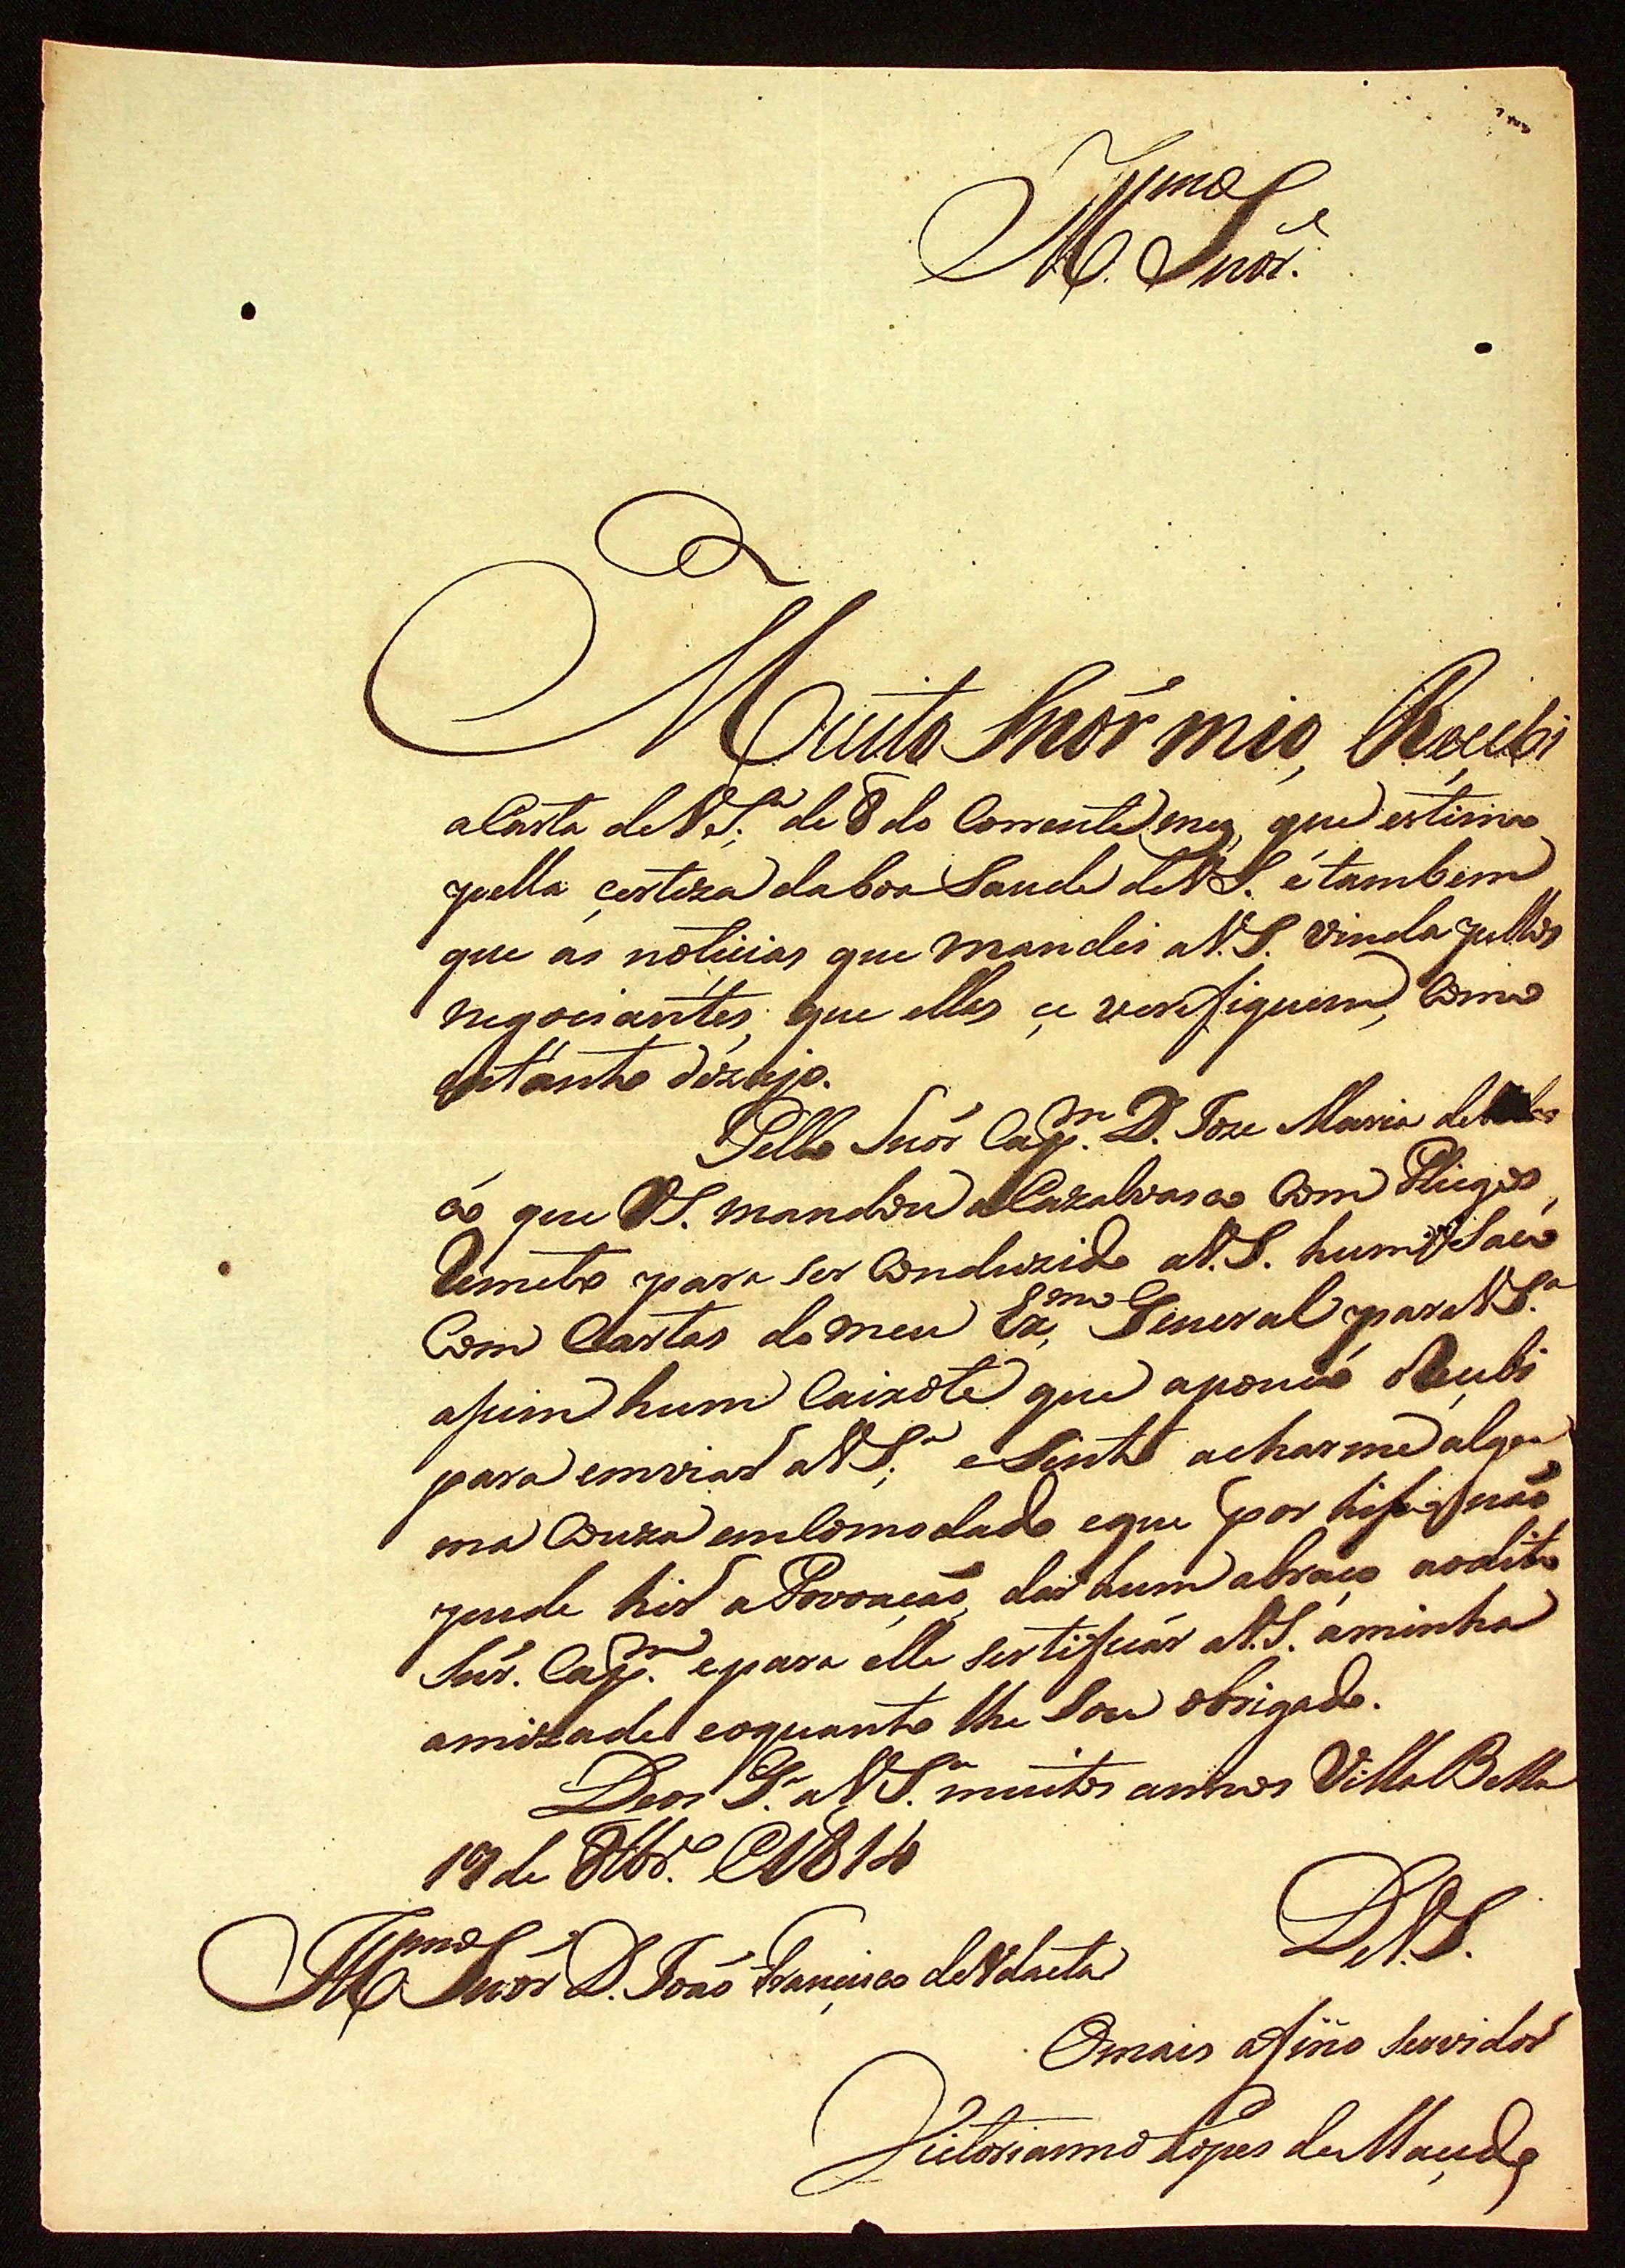 Illmo
M. Snor.
Muito Snõr mio, Recebi
a Carta de V.S.ª de 8 do Corrente mez, que estimo
pella certeza da boa Saude de V.S. e tambem
que as noticias que mandei a V.S. vinda pellos
negociantes, que elles çe verefiquem, Como
eu tanto dezejo.
Pello Snõr Capm. D. Joze Maria de
o que V.S. mandou a Cazalvasco Com Pliegos,
Remeto para ser Conduzido a V.S. hum Saco
Com Cartas do meu Exmo General para V.S.ª
asim hum Caixote que a pouco Recubi
para enviar a V.S.ª e Sinto acharme algu
ma Couza emComodado e que por hiso não
pude hir a Povoação, dar hum abraço ao dito
Snr. Capm. e para elle sertificar a V.S. a minha
amizade e o quanto lhe Sou obrigado.
Deos G.e a V.S.ª muitos annos Villa Bella
19 de 8bro. 1814
D.V.S.
Illmo Snõr D. João Francisco de Vdaeta
O mais afino servidor
Victorianno Lopes de Maçedo